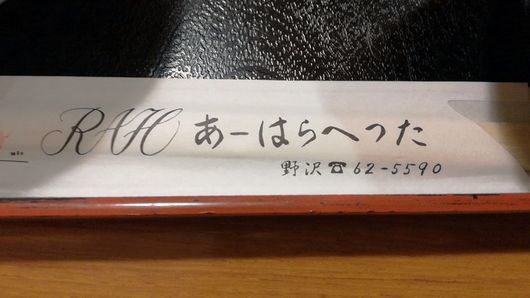 RAH あーはらへった
野沢☎62-5590